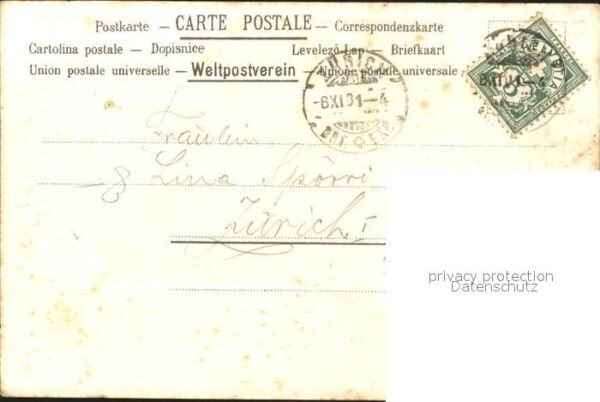 Postkarte — CARTE POSTALE — Correspondenzkarte
Cartolina postale — Dopisnice Levelező-Lap — Briefkaart
Union postale universelle — Weltpostverein — Unione postale universale
ZÜRICH
-6XI01-4
BRF.
HELVETIA
6XI01-4
5
Fräulein
Lina Spörri
Zürich I
privacy protection
Datenschutz